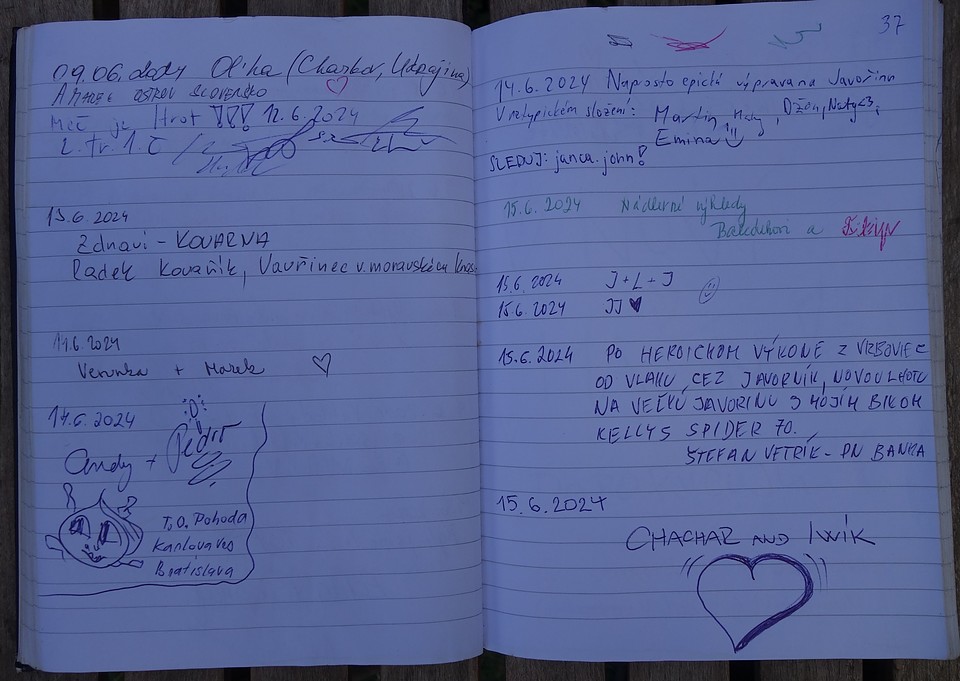 09.06. Olha (Charkov, Ukrajina)
OSTROV SLOVENSKO
Meč je Hrot !!! 12.6.2024
2. tr. 1. č
13.6.2024
Zdraví - KOVARNA
Radek Kovařík, Vavřinec v moravském Kras
14.6.2024
Verunka + Marek
14.6.2024
Andy + Pedro
T.O. Pohoda
Karlova ves
Bratislava
37
14.6.2024 Naprosto epická výprava na Javořinu
V netypickém složení: Martin, Maty, Džen, Naty<3,
Emina
SLEDUJ: janca.john!
15.6.2024 Nádherné výhledy
a
15.6.2024 J+L+J
15.6.2024 JJ
15.6.2024 PO HEROICKOM VÝKONE Z VRBOVIEC
OD VLAKU, CEZ JAVORNÍK, NOVOU LHOTU
NA VEĽKÚ JAVORINU S MOJÍM BIKOM
KELLYS SPIDER 70.
ŠTEFAN VETRÍK - PN BANKA
15.6.2024
CHACHAR AND IWÍK